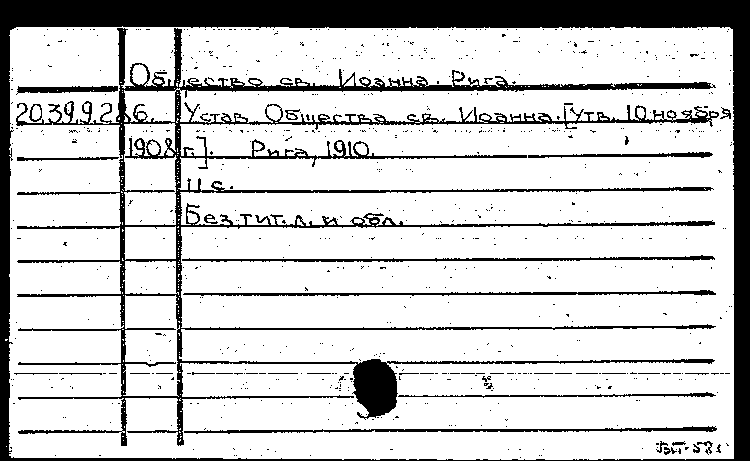 Общество св. Иоанна. Рига.
20.39.9.286. Устав Общества св. Иоанна. [Утв. 10 ноября
1908 г.]. Рига, 1910.
11 с.
Без тит. л. и обл.